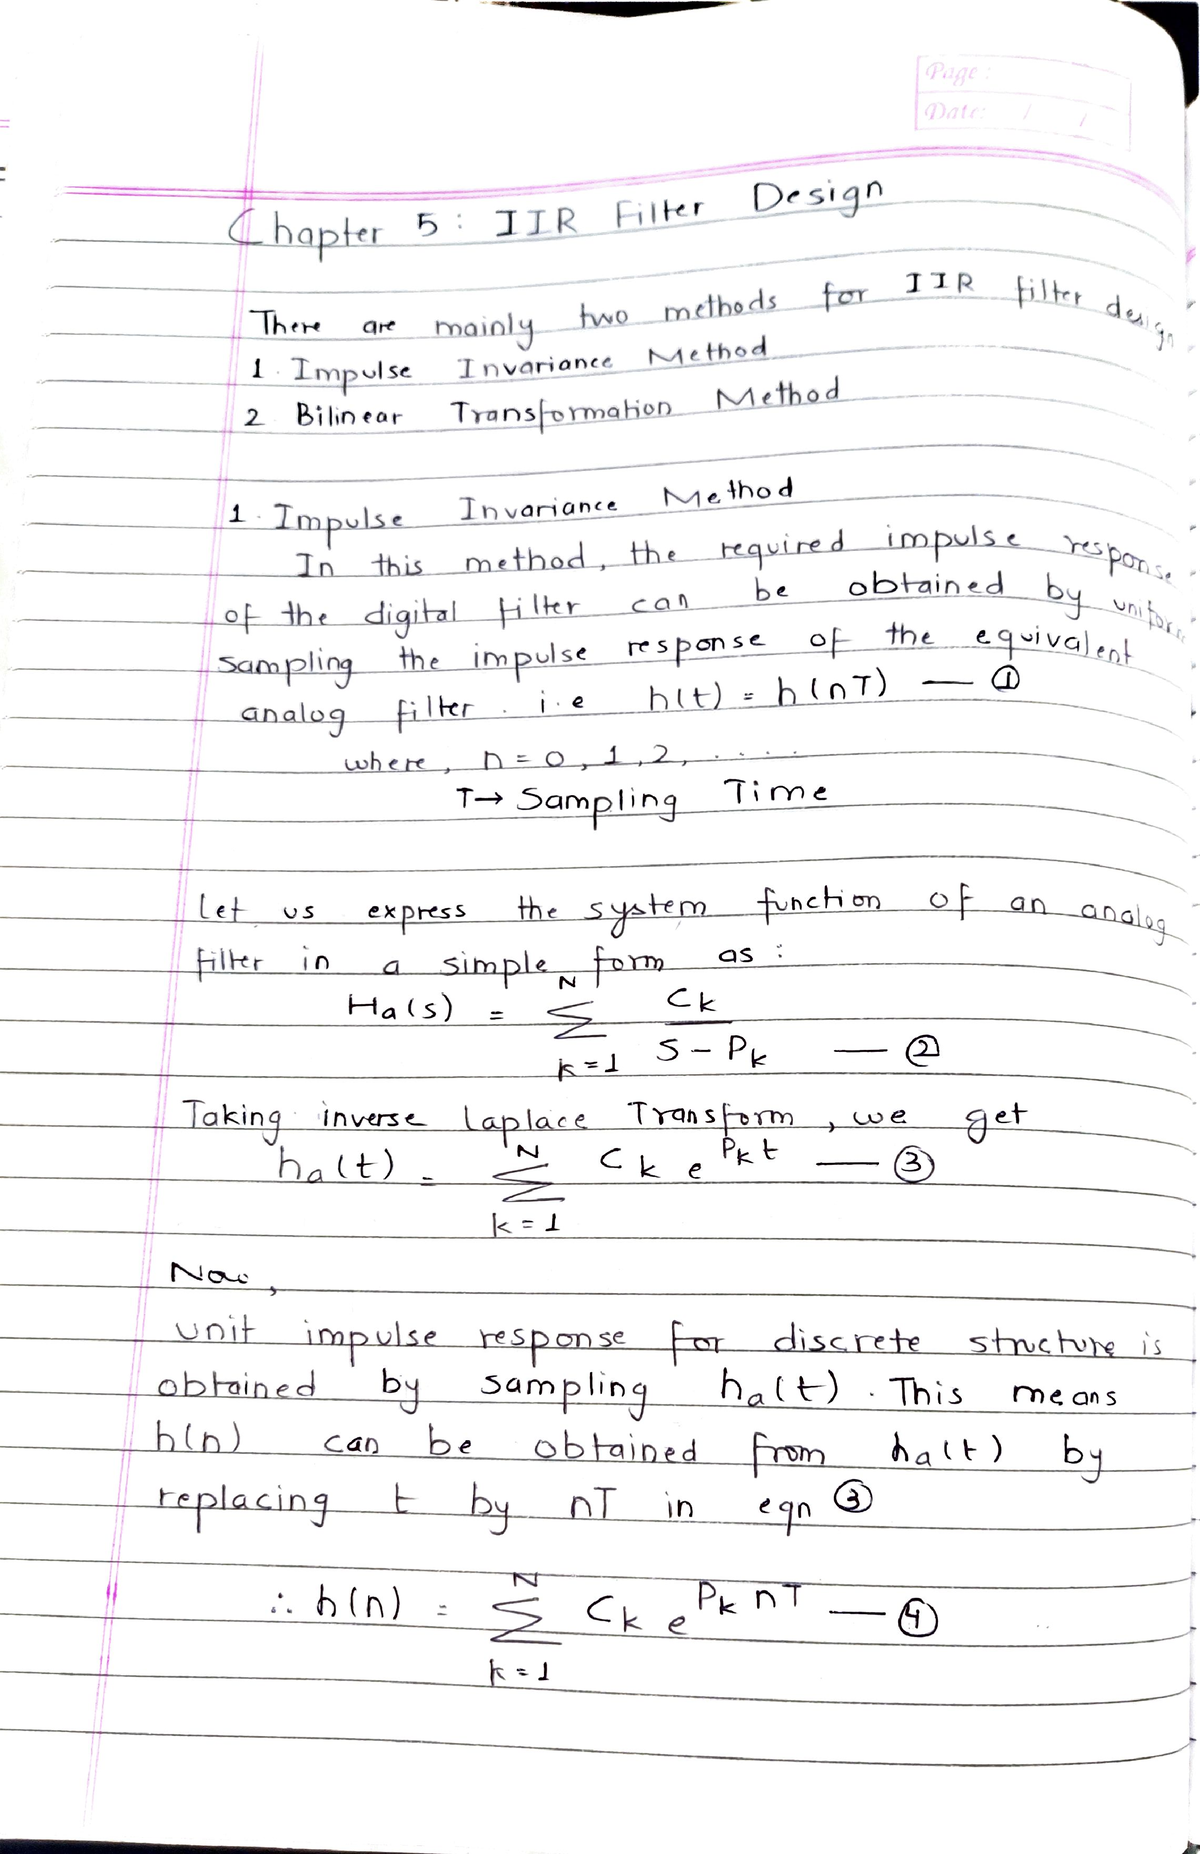 Page :
Date: / /
Chapter 5 : IIR Filter Design
There are mainly two methods for IIR filter design
1. Impulse Invariance Method
2 Bilinear Transformation Method
1. Impulse Invariance Method
In this method, the required impulse response
of the digital filter can be obtained by uniform
sampling the impulse response of the equivalent
analog filter. i.e h(t) = h(nT) — ①
where, n = 0, 1, 2, .....
T→ Sampling Time
Let us express the system function of an analog
filter in a simple form as :
Ha(s) = N Σ k=1 Ck / S - Pk — ②
Taking inverse Laplace Transform, we get
ha(t) = N Σ k=1 Ck e Pkt — ③
Now,
unit impulse response for discrete structure is
obtained by sampling ha(t). This means
h(n) can be obtained from ha(t) by
replacing t by nT in eqn ③
∴ h(n) = N Σ k=1 Ck e Pk nT — ④